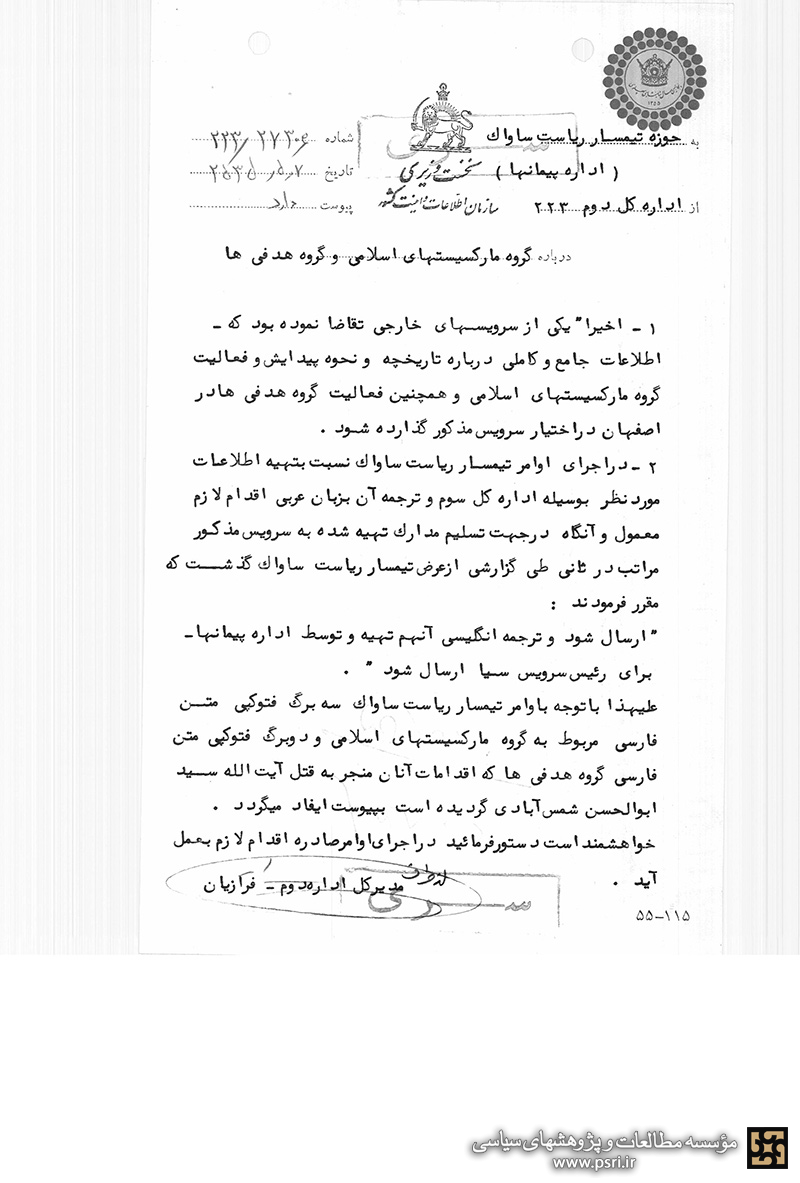 به حوزه تیمسار ریاست ساواک
( اداره پیمانها )
از اداره کل دوم ۲۲۳
نخست وزیری
سازمان اطلاعات و امنیت کشور
شماره ۲۲۳/۲۷۳۰۶
تاریخ ۲۵۳۵
پیوست دارد
درباره گروه مارکسیستهای اسلامی و گروه هدفی ها
۱ - اخیرا" یکی از سرویسهای خارجی تقاضا نموده بود که -
اطلاعات جامع و کاملی درباره تاریخچه و نحوه پیدایش و فعالیت
گروه مارکسیستهای اسلامی و همچنین فعالیت گروه هدفی ها در
اصفهان در اختیار سرویس مذکور گذارده شود .
۲ - در اجرای اوامر تیمسار ریاست ساواک نسبت بتهیه اطلاعات
مورد نظر بوسیله اداره کل سوم و ترجمه آن بزبان عربی اقدام لازم
معمول و آنگاه در جهت تسلیم مدارک تهیه شده به سرویس مذکور
مراتب در ثانی طی گزارشی از عرض تیمسار ریاست ساواک گذشت که
مقرر فرمودند :
" ارسال شود و ترجمه انگلیسی آنهم تهیه و توسط اداره پیمانها -
برای رئیس سرویس سیا ارسال شود " .
علیهذا با توجه باوامر تیمسار ریاست ساواک سه برگ فتوکپی متن
فارسی مربوط به گروه مارکسیستهای اسلامی و دوبرگ فتوکپی متن
فارسی گروه هدفی ها که اقدامات آنان منجر به قتل آیت الله سید
ابوالحسن شمس آبادی گردیده است بپیوست ایفاد میگردد .
خواهشمند است دستور فرمائید در اجرای اوامر صادره اقدام لازم بعمل
آید .
مدیرکل اداره دوم - فرازیان
سری
۵۵-۱۱۵
مؤسسه مطالعات و پژوهشهای سیاسی
www.psri.ir